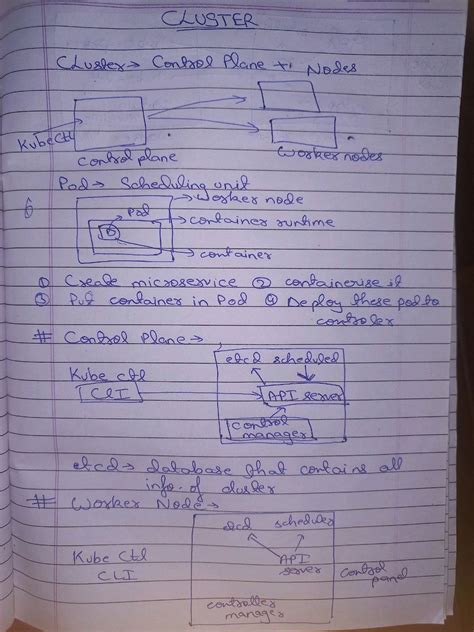 CLUSTER
Cluster → Control Plane + Nodes
KubeCtl
Control plane
Worker nodes
Pod → Scheduling unit
→ Worker node
Pod
→ container runtime
→ container
① Create microservice ② containerise it
③ Put container in Pod ④ Deploy these pod to
controler
# Control Plane →
etcd scheduled
Kube ctl
CLI
API server
Control
manager
etcd → database that contains all
info. of cluster
# Worker Node →
etcd scheduler
Kube Ctl
CLI
API
server
Control
panel
controller
manager